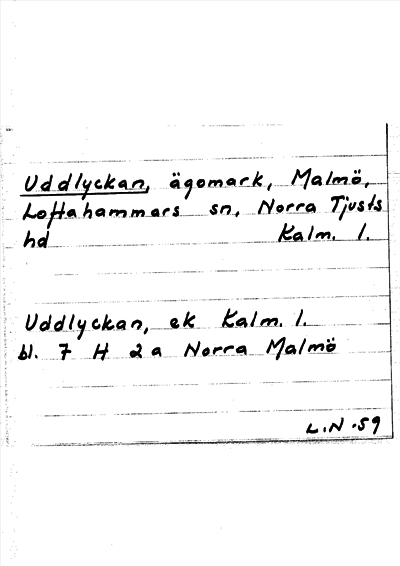 Uddlyckan, ägomark, Malmö,
Loftahammars sn, Norra Tjusts
hd Kalm. l.
Uddlyckan, ek Kalm. l.
bl. 7 H 2a Norra Malmö
L.N -59